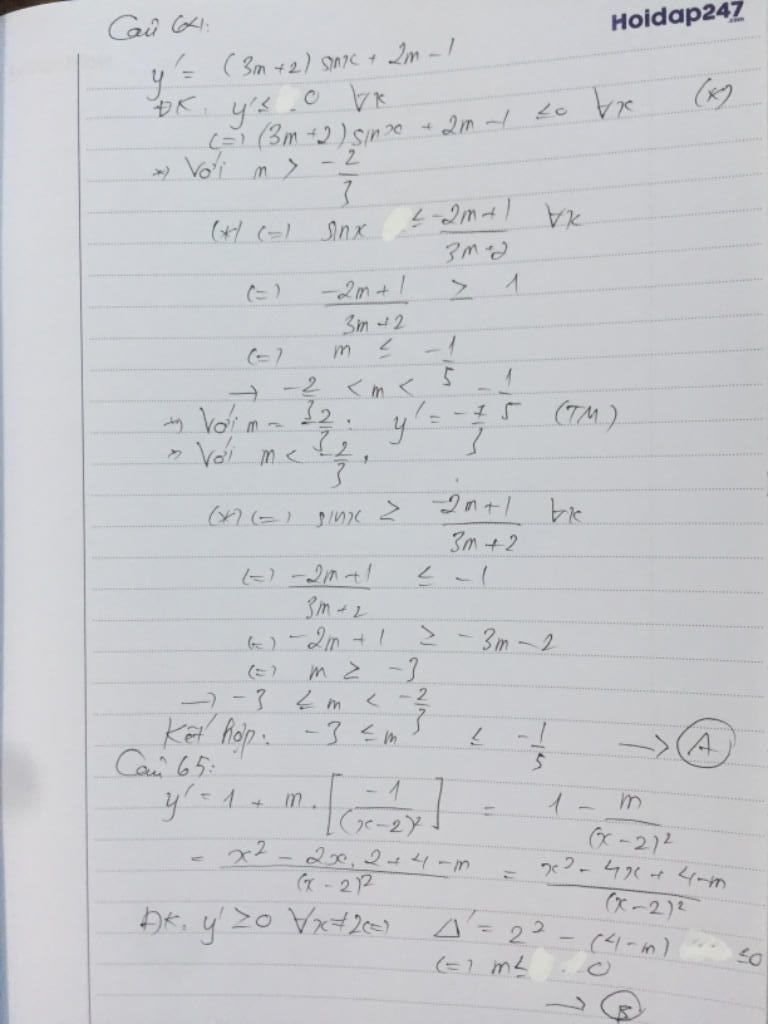 Hoidap247
.com
Câu 64:
y' = (3m+2) sinx + 2m - 1
ĐK. y' ≤ 0 ∀x
(=) (3m+2) sinx + 2m - 1 ≤ 0 ∀x (*)
*) Với m > -2/3
(*) (=) sinx ≤ (-2m+1)/(3m+2) ∀x
(=) (-2m+1)/(3m+2) ≥ 1
(=) m ≤ -1/5
→ -2/3 < m < -1/5
*) Với m = -2/3 : y' = -7/3 (TM)
*) Với m < -2/3,
(*) (=) sinx ≥ (-2m+1)/(3m+2) ∀x
(=) (-2m+1)/(3m+2) ≤ -1
(=) -2m+1 ≥ -3m-2
(=) m ≥ -3
→ -3 ≤ m < -2/3
Kết hợp: -3 ≤ m ≤ -1/5 → A
Câu 65:
y' = 1 + m.[-1/(x-2)²] = 1 - m/(x-2)²
= (x² - 2x.2 + 4 - m)/(x-2)² = (x² - 4x + 4 - m)/(x-2)²
ĐK. y' ≥ 0 ∀x≠2 (=) Δ' = 2² - (4-m) ≤ 0
(=) m ≤ 0
→ B